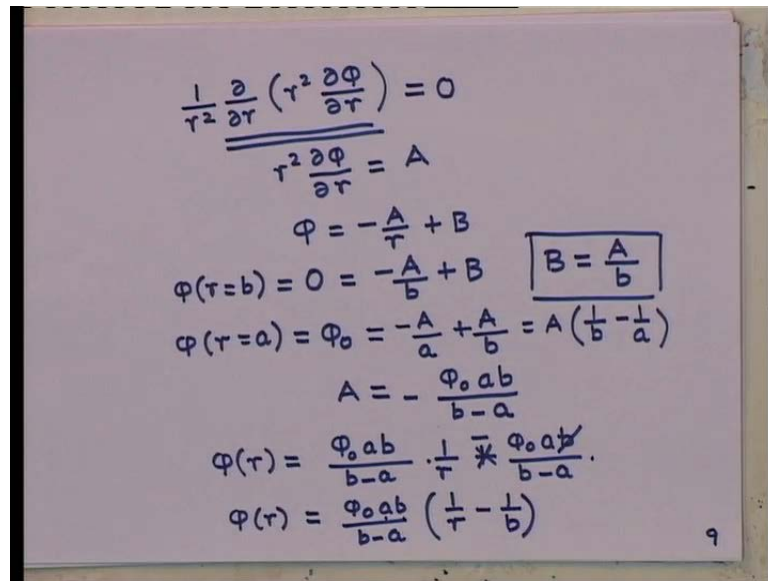 1/r² ∂/∂r (r² ∂φ/∂r) = 0
r² ∂φ/∂r = A
φ = -A/r + B
φ(r=b) = 0 = -A/b + B B = A/b
φ(r=a) = φ₀ = -A/a + A/b = A(1/b - 1/a)
A = - φ₀ab/b-a
φ(r) = φ₀ab/b-a · 1/r - φ₀a/b-a.
φ(r) = φ₀ab/b-a (1/r - 1/b)
9